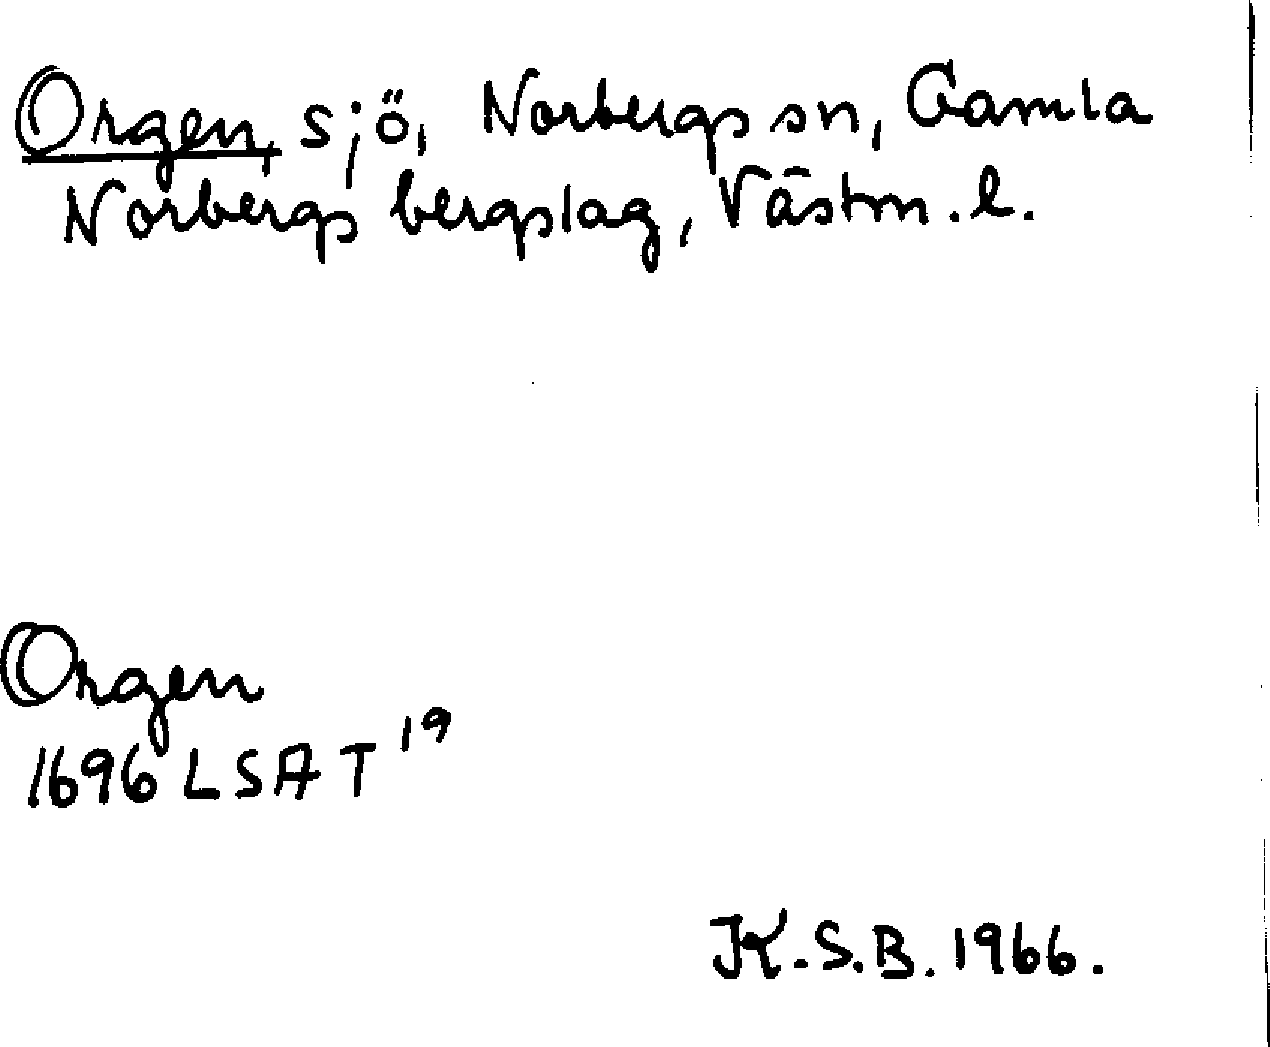 Orgen, sjö, Norbergs sn, Gamla
Norbergs bergslag, Västm. l.
Orgen
1696 LSA T 19
K.S.B. 1966.